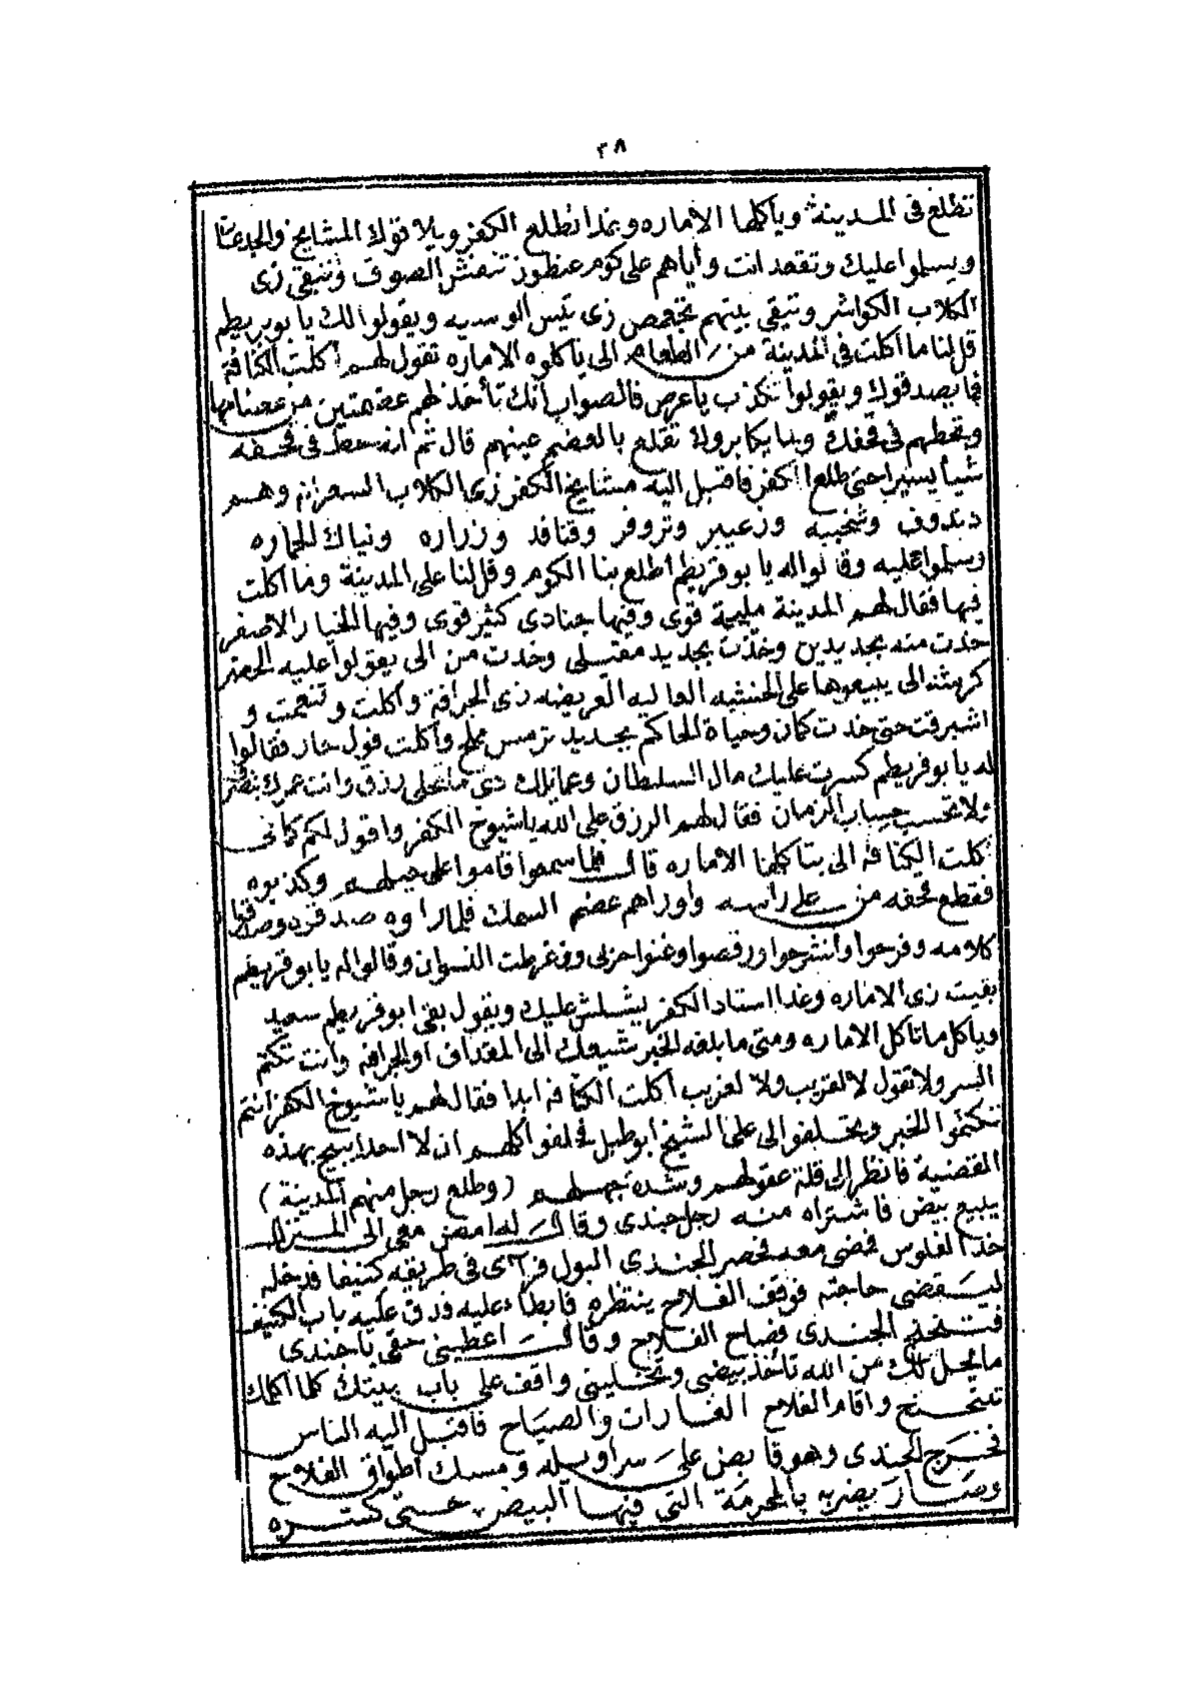 ٣٨
تطلع في المدينة ويأكلها الاماره وغدا تطلع الكفر ويلاقوك المشايخ والجدعان
ويسلموا عليك وتقعد انت واياهم على كوم عنطوز تنفش الصوف وتبقى زى
الكلاب الكواشر وتبقى بينهم تخمص زى تيس الوسيه ويقولوا لك يا بو بريطم
قل لنا ما اكلت في المدينة من الطعام الى ياكلوه الاماره تقول لهم اكلت الكنافة
فما يصدقوك ويقولوا تكذب يا عرص فالصواب انك تأخذ لهم عضمتين من عضامها
وتحطهم في قحفك وبدا يكابروك تقلع بالعضم عينهم قال ثم انه حط في قحفه
شيأ يسيرا حتى طلع الكفر فاقبل اليه مشايخ الكفر زى الكلاب السعرانه وهم
دندوف وشخيبه وزعيبر وتروفر وقنافد وزراره ونياك الحماره
وسلموا عليه وقالوا له يا بو فريطم اطلع بنا الكوم وقل لنا على المدينة وما اكلت
فيها فقال لهم المدينة مليحة قوى وفيها جنادى كثير قوى وفيها الخيار الاصفر
خدت منه بجديدين وخدت بجديد مقتلى وخدت من الى يقولوا عليه الحصر
كرشنه الى يبيعوها على الخشبه العاليه العريضه زى الجرافة واكلت وتنعمت و
اشبرقت حتى خدت كمان وحياة الحاكم بجديد ترمس مملح واكلت فول حار فقالوا
له يا بو فريطم كسرت عليك مال السلطان وعمايلك دى ما تخلى رزق وانت عمرك بتصغر
ولا تحسب حساب الزمان فقال لهم الرزق على الله يا شيوخ الكفر واقول لكم كمان
كلت الكنافه الى بتاكلها الاماره قال فلما سمعوا قاموا على حيلهم وكدبوه
فقطع قحفه من على راسه واوراهم عضم السمك فلما راوه صدقوه وصدقوا
كلامه وفرحوا وانشرحوا ورقصوا وغنوا حزبى وزغرطت النسوان وقالوا له يا بو فريطم
بقيت زى الاماره وغدا استاد الكفر يشلش عليك ويقول بقى ابو فريطم سعيد
وياكل ما تاكل الاماره ومتى ما بلغه الخبر شيعك الى المقداف او الجرافه وانت تكتم
السر ولا تقول لا لقريب ولا لغريب اكلت الكنافه ابدا فقال لهم يا شيوخ الكفر انتم
تكتموا الخبر وتحلفوا لى على الشيخ ابو طبل فحلفوا كلهم ان لا احدا يبيح بهذه
القضية فانظر الى قلة عقولهم وشدة جهلهم (وطلع رجل منهم المدينة)
يبيع بيض فاشتراه منه رجل جندى وقال له امض معى الى المنزل
خذ الفلوس فمضى معه فحصر الجندى البول فرآى في طريقه كنيفا فدخله
ليقضى حاجته فوقف الفلاح ينتظره فابطأ عليه فدق عليه باب الكنيف
فتنحنح الجندى فصاح الفلاح وقال اعطينى حقى يا جندى
ما يحل لك من الله تاخذ بيضى وتخلينى واقف على باب بيتك كلما اكلمك
تتنحنح واقام الفلاح الغارات والصياح فاقبل اليه الناس
فخرج الجندى وهو قابض على سراويله ومسك اطواق الفلاح
وصار يضربه بالمحرمة التى فيها البيض حتى كسره